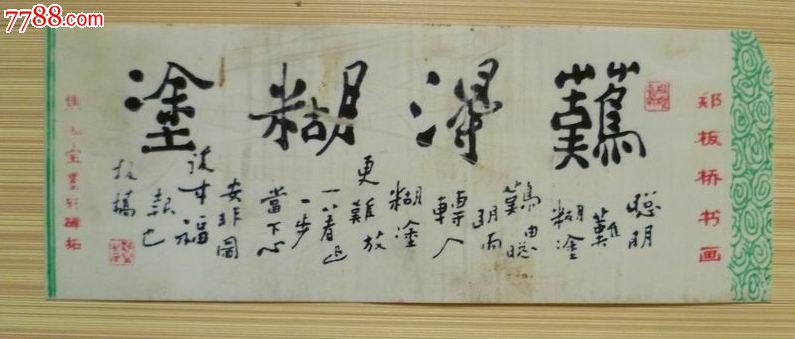 7788.com
郑板桥书画
難得糊塗
聰明
難
糊塗
難由聰
明而
轉入
糊塗
更難放
一着退
一步
當下心
安非圖
後来福
報也
板橋